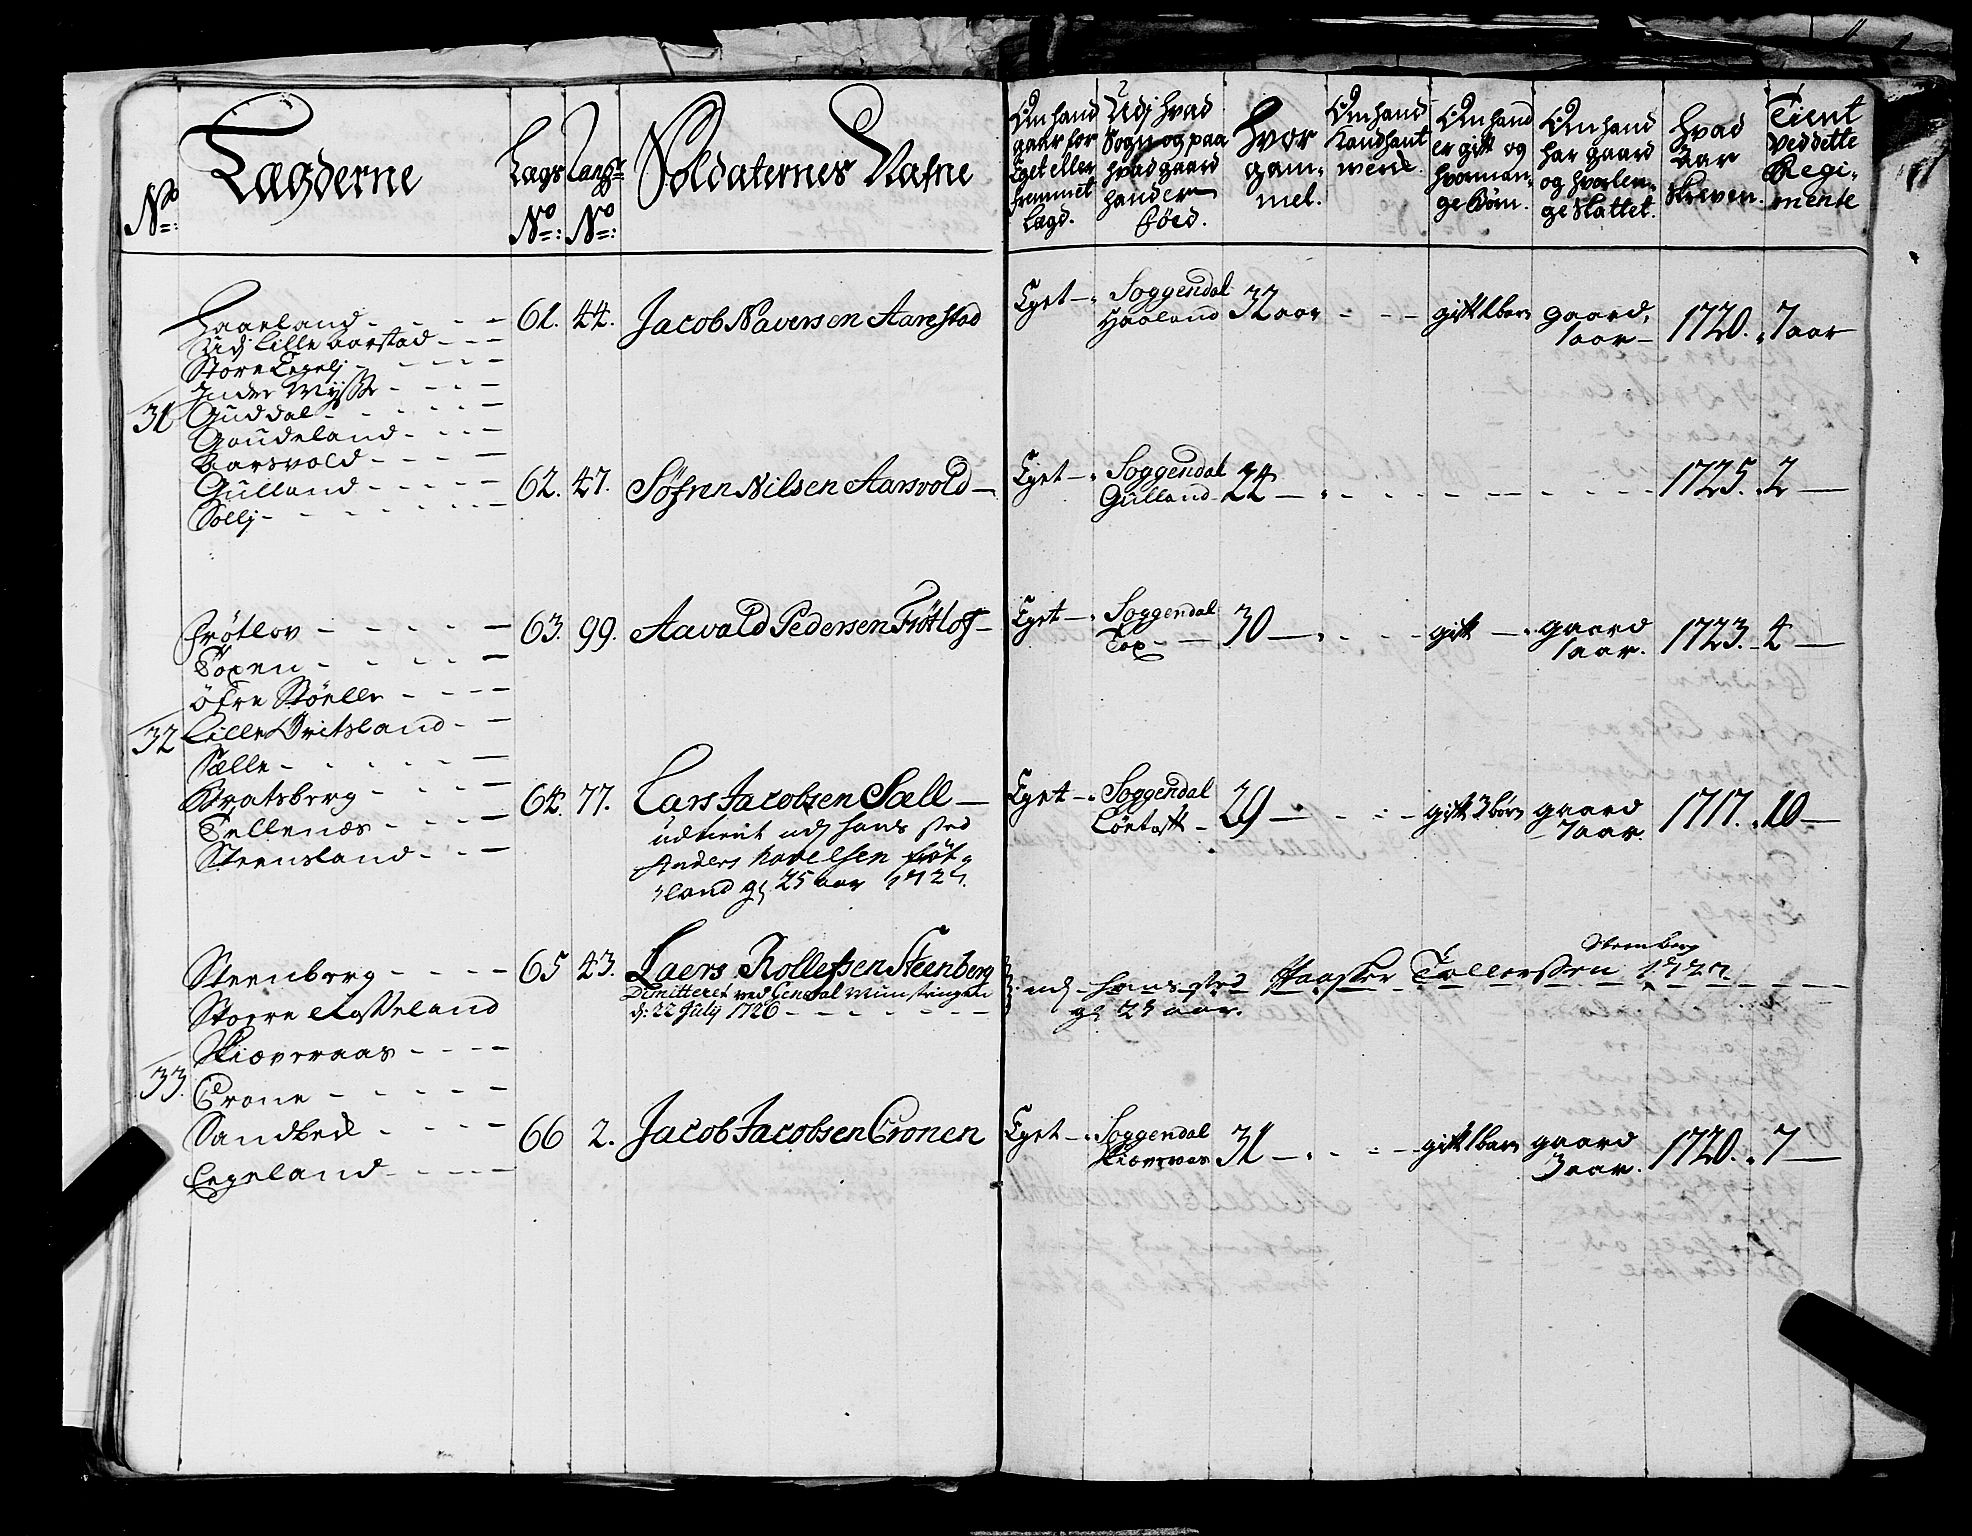 No:
Lægderne
Lægs No:
Rang: No:
Soldaternes Nafne
Om hand gaar for Eget eller fremmet Lægd.
Udj hvad Sogn og paa hvad gaard hand er Føed.
Hvor gam: mel.
Om hand kand hant were.
Om hand er gift og hvor man: ge Børn.
Om hand har gaard og hvor len: ge hattet.
Hvad Aar skreven.
Tient ved dette Regi: mente
31
Haaeland
Udj Lille Aarstad
Store Eegelj
Inder Mysse
Guddal
Gaudeland
Aarsvold
Gulland
Sollj
61. 44. Jacob Naversen Aarestad
Eget Soggendal Haaland 32 aar gift 1 barn gaard, 1 aar 1720. 7 aar
62. 47. Søfren Nilsen Aarsvold
Eget Soggendal Gulland 22 1725. 2
32
Frøtlov
Toxen
Øfre Støelle
Lille Oritsland
Sælle
Bratsberg
Tellenæs
Steensland
63. 99. Aavald Pedersen Frøtlof
Eget Soggendal Tox 30 gift gaard 1 aar. 1723. 4
64. 77. Lars Jacobsen Sæll
udtient udj hans sted
Anders Havelsen Frøt
land gl 25 aar 1727.
Eget Soggendal 29 gift 3 børn gaard 7 aar. 1717. 10
33.
Steenberg
Stoere Rosseland
Skiæveraas
Crone
Sandbeck
Eegeland
65 43. Laers Rollefsen Steenberg
Dimitteret ved General Munstringen
d: 22 July 1726
udj hans sted Aasker Tollefssen Steenberg 1727
gl 23 aar.
66 2. Jacob Jacobsen Cronen
Eget Soggendal 31 gift 1 barn gaard 3 aar. 1720. 7